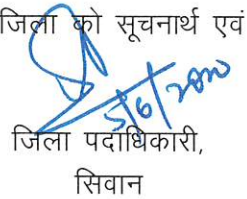 जिला को सूचनार्थ एवं
5/6/2020
जिला पदाधिकारी,
सिवान